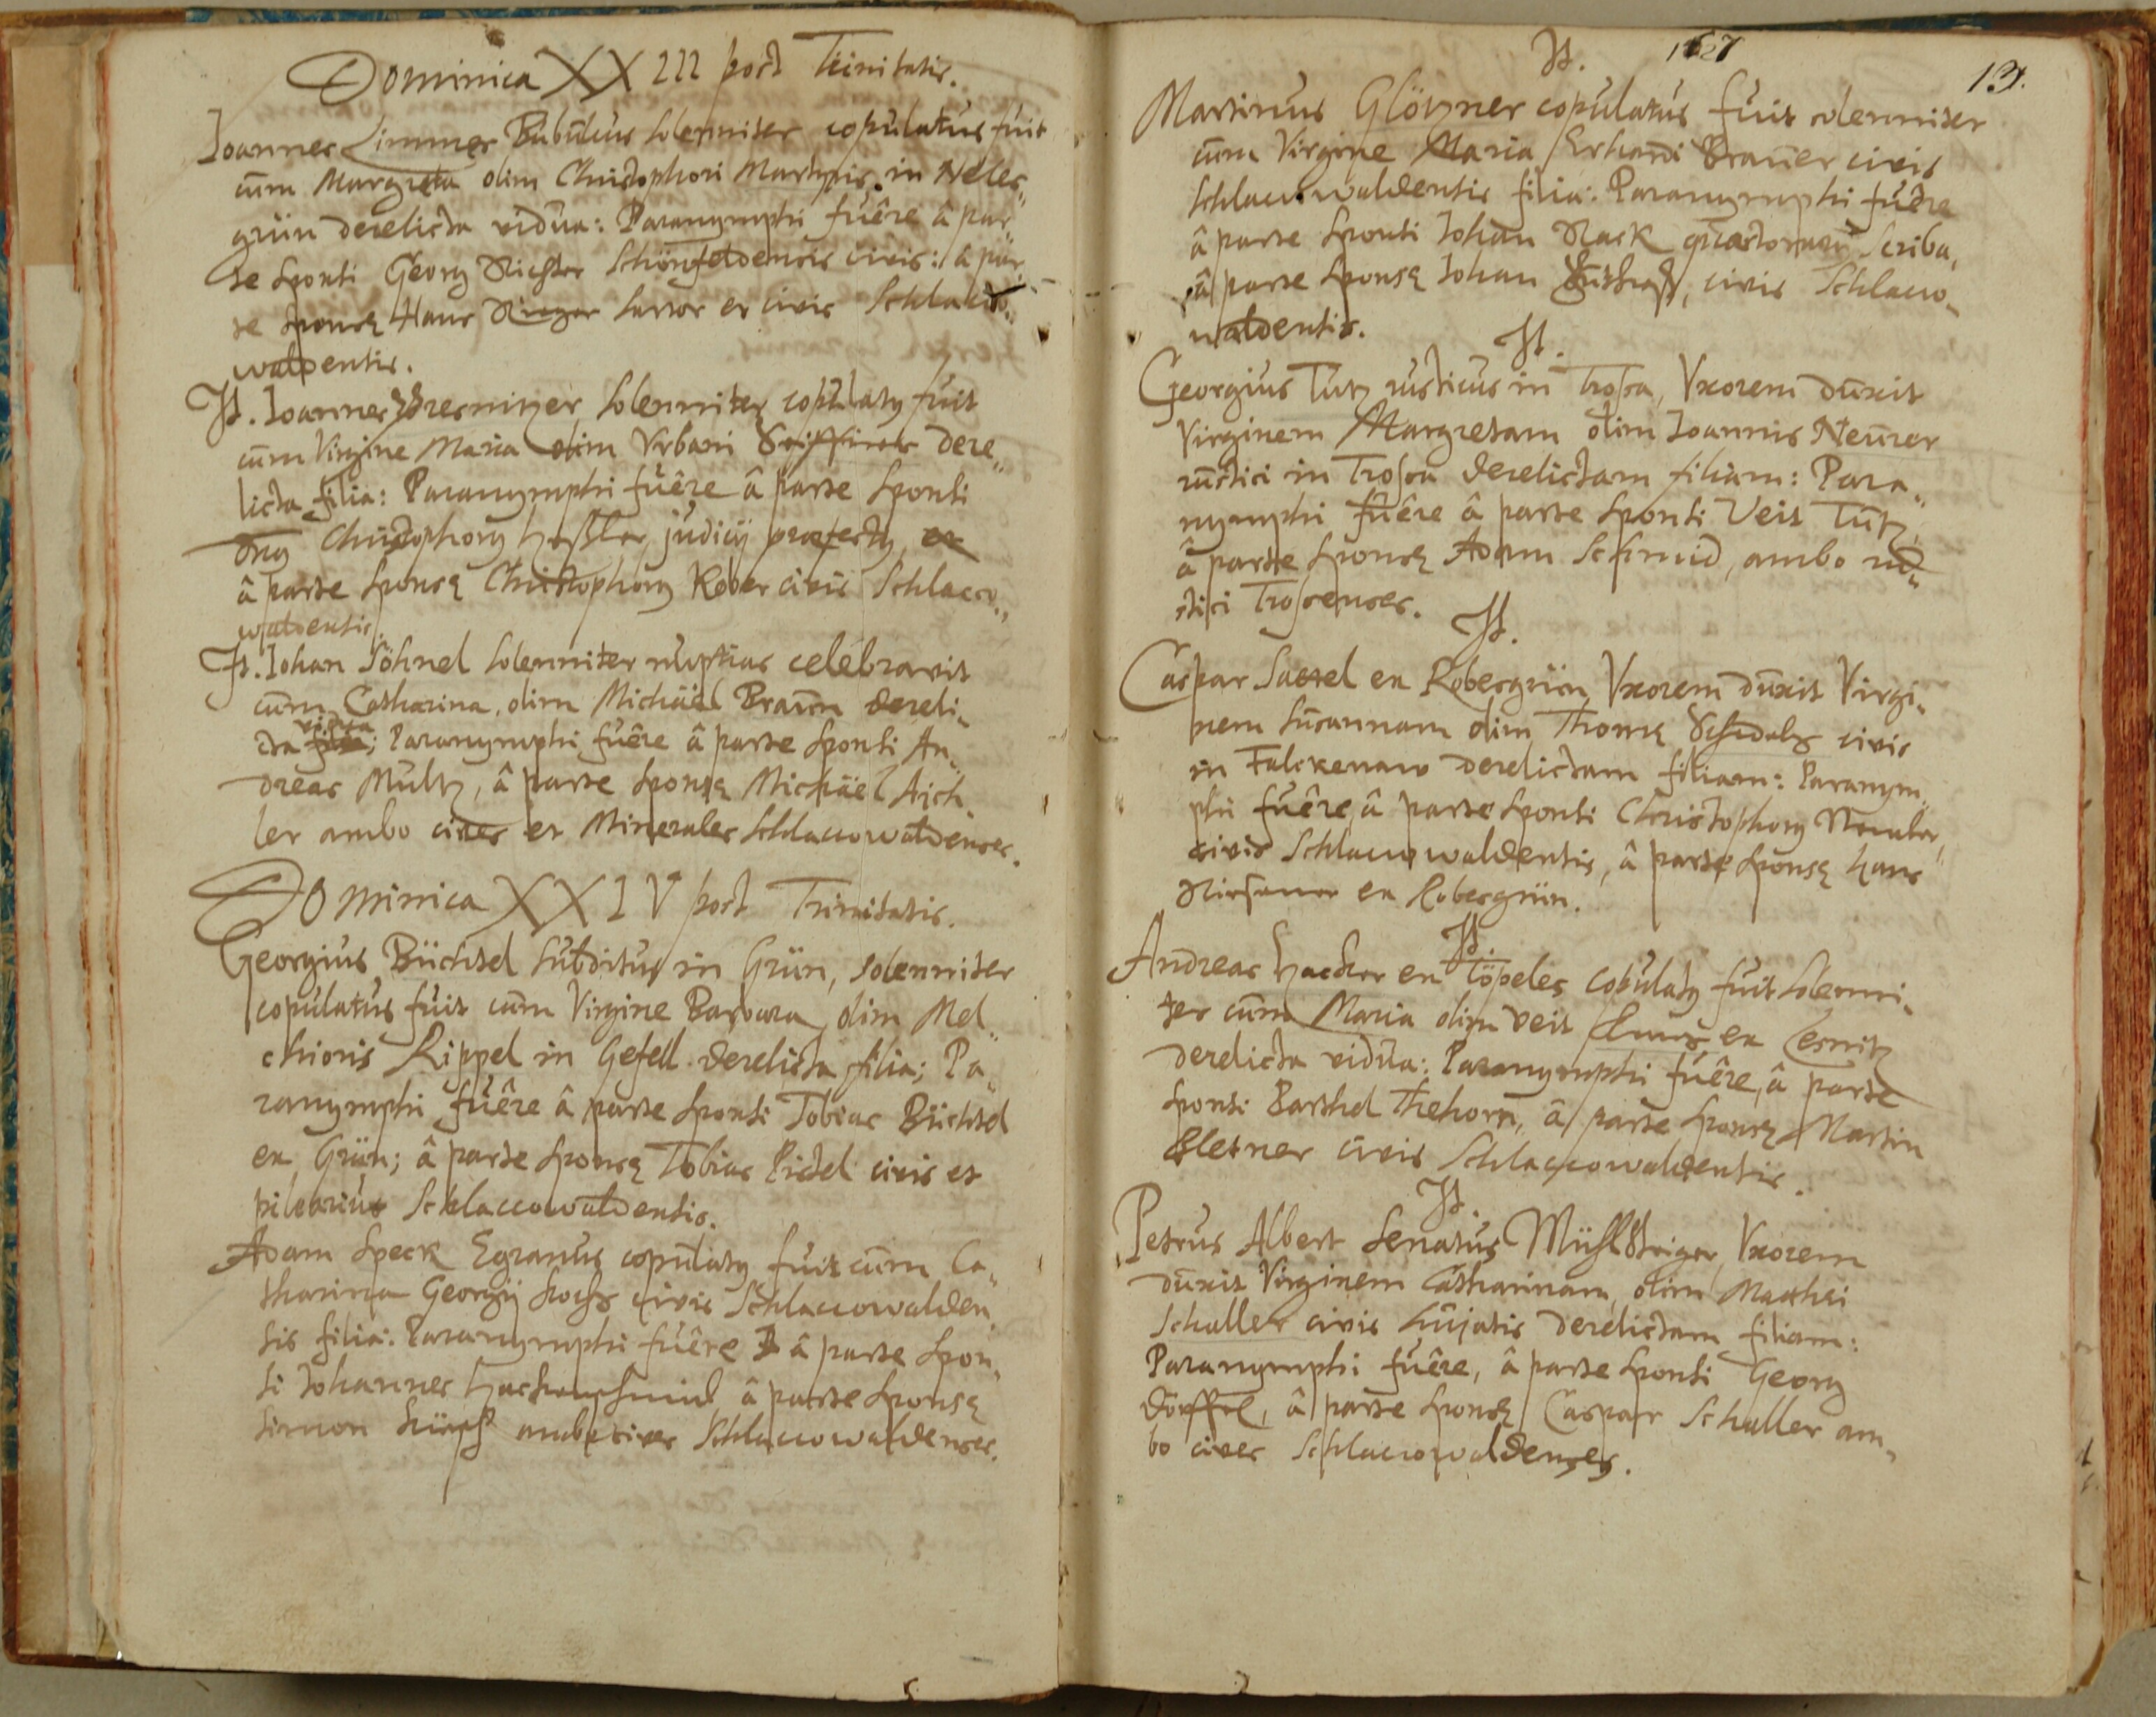 Dominica XXIII post Trinitatis.
Joannes Limmer Bubulcus solenniter copulatus fuit
cum Margreta olim Christophori Martyris in Neles„
grün derelicta vidua: Paranymphi fuêre â par„
te sponsi Georg Richter Schönfeldensis civis: â par„
te sponsę Hans Rieger sartor et civis Schlacco„
waldensis.
It. Joannes Dresnitzer solenniter copulatꝯ fuit
cum Virgine Maria olim Urbani dere„
licta filia: Paranymphi fuêre â parte sponsi
Dnꝯ Christophorꝯ Heßler judicij præfectꝯ et
â parte sponsę Christophorꝯ Kober civis Schlacco„
waldensis.
It. Johan Söhnel solenniter nuptias celebravit
cum Catharina, olim Michäel Braun dereli„
cta vidua: Paranymphi fuêre â parte sponsi An„
dreas Multz, â parte sponsę Michäel Aich„
ler ambo cives et Minerales Schlaccowaldenses.
Dominica XXIV post Trinitatis.
Georgius Büchsel subditus in Grün, solenniter
copulatus fuit cum Virgine Barbara, olim Mel„
chioris Rippel in Gefell derelicta filia; Pa„
ranymphi fuêre â parte sponsi Tobias Büchsel
ex Grün; â parte sponsę Tobias Pistel civis et
pilearius Schlaccowaldensis.
Adam Speck Egranus copulatꝯ fuit cum Ca„
tharina Georgij civis Schlaccowalden„
sis filia: Paranymphi fuêre â parte spon„
si Johannes Hackenschmid, â parte sponsę
Simon ambo cives Schlaccowaldenses.
It. 1627
131.
Martinus Glötzner copulatus fuit solenniter
cum Virgine Maria Erhardi Brauer civis
Schlaccowaldensis filia: Paranymphi fuêre
â parte sponsi Johan Rack quæstorum Scriba,
â parte sponsę Johan, civis Schlacco„
waldensis.
It.
Georgius Tutz rusticus in Trossa, Uxorem duxit
Virginem Margretam olim Joannis Neurer
rustici in Trossa derelictam filiam: Para„
nymphi fuêre â parte sponsi Veit Tutz,
â parte sponsę Adam Schmid, ambo ru„
stici Trossenses.
It.
Caspar Sattel ex Robesgrün Uxorem duxit Virgi„
nem Susannam olim Thomę civis
in Falckenaw derelictam filiam: Paranym„
phi fuêre, â parte sponsi Christophorꝯ
civis Schlaccowaldensis, â parte sponsę Hans
ex Robesgrün.
It.
Andreas Hacker ex Töpeles copulatꝯ fuit solenni„
ter cum Maria olim Veit ex Lesnitz
derelicta vidua: Paranymphi fuêre, â parte
sponsi Barthel Thehorn, â parte sponsę Martin
Gletner civis Schlaccowaldensis.
It.
Petrus Albert Senatus Mühlsteiger, Uxorem
duxit Virginem Catharinam, olim Matthei
Schaller civis hujatis derelictam filiam:
Paranymphi fuêre, â parte sponsi Georg
Döeffel, â parte sponsę Caspar Schaller am„
bo cives Schlaccowaldenses.